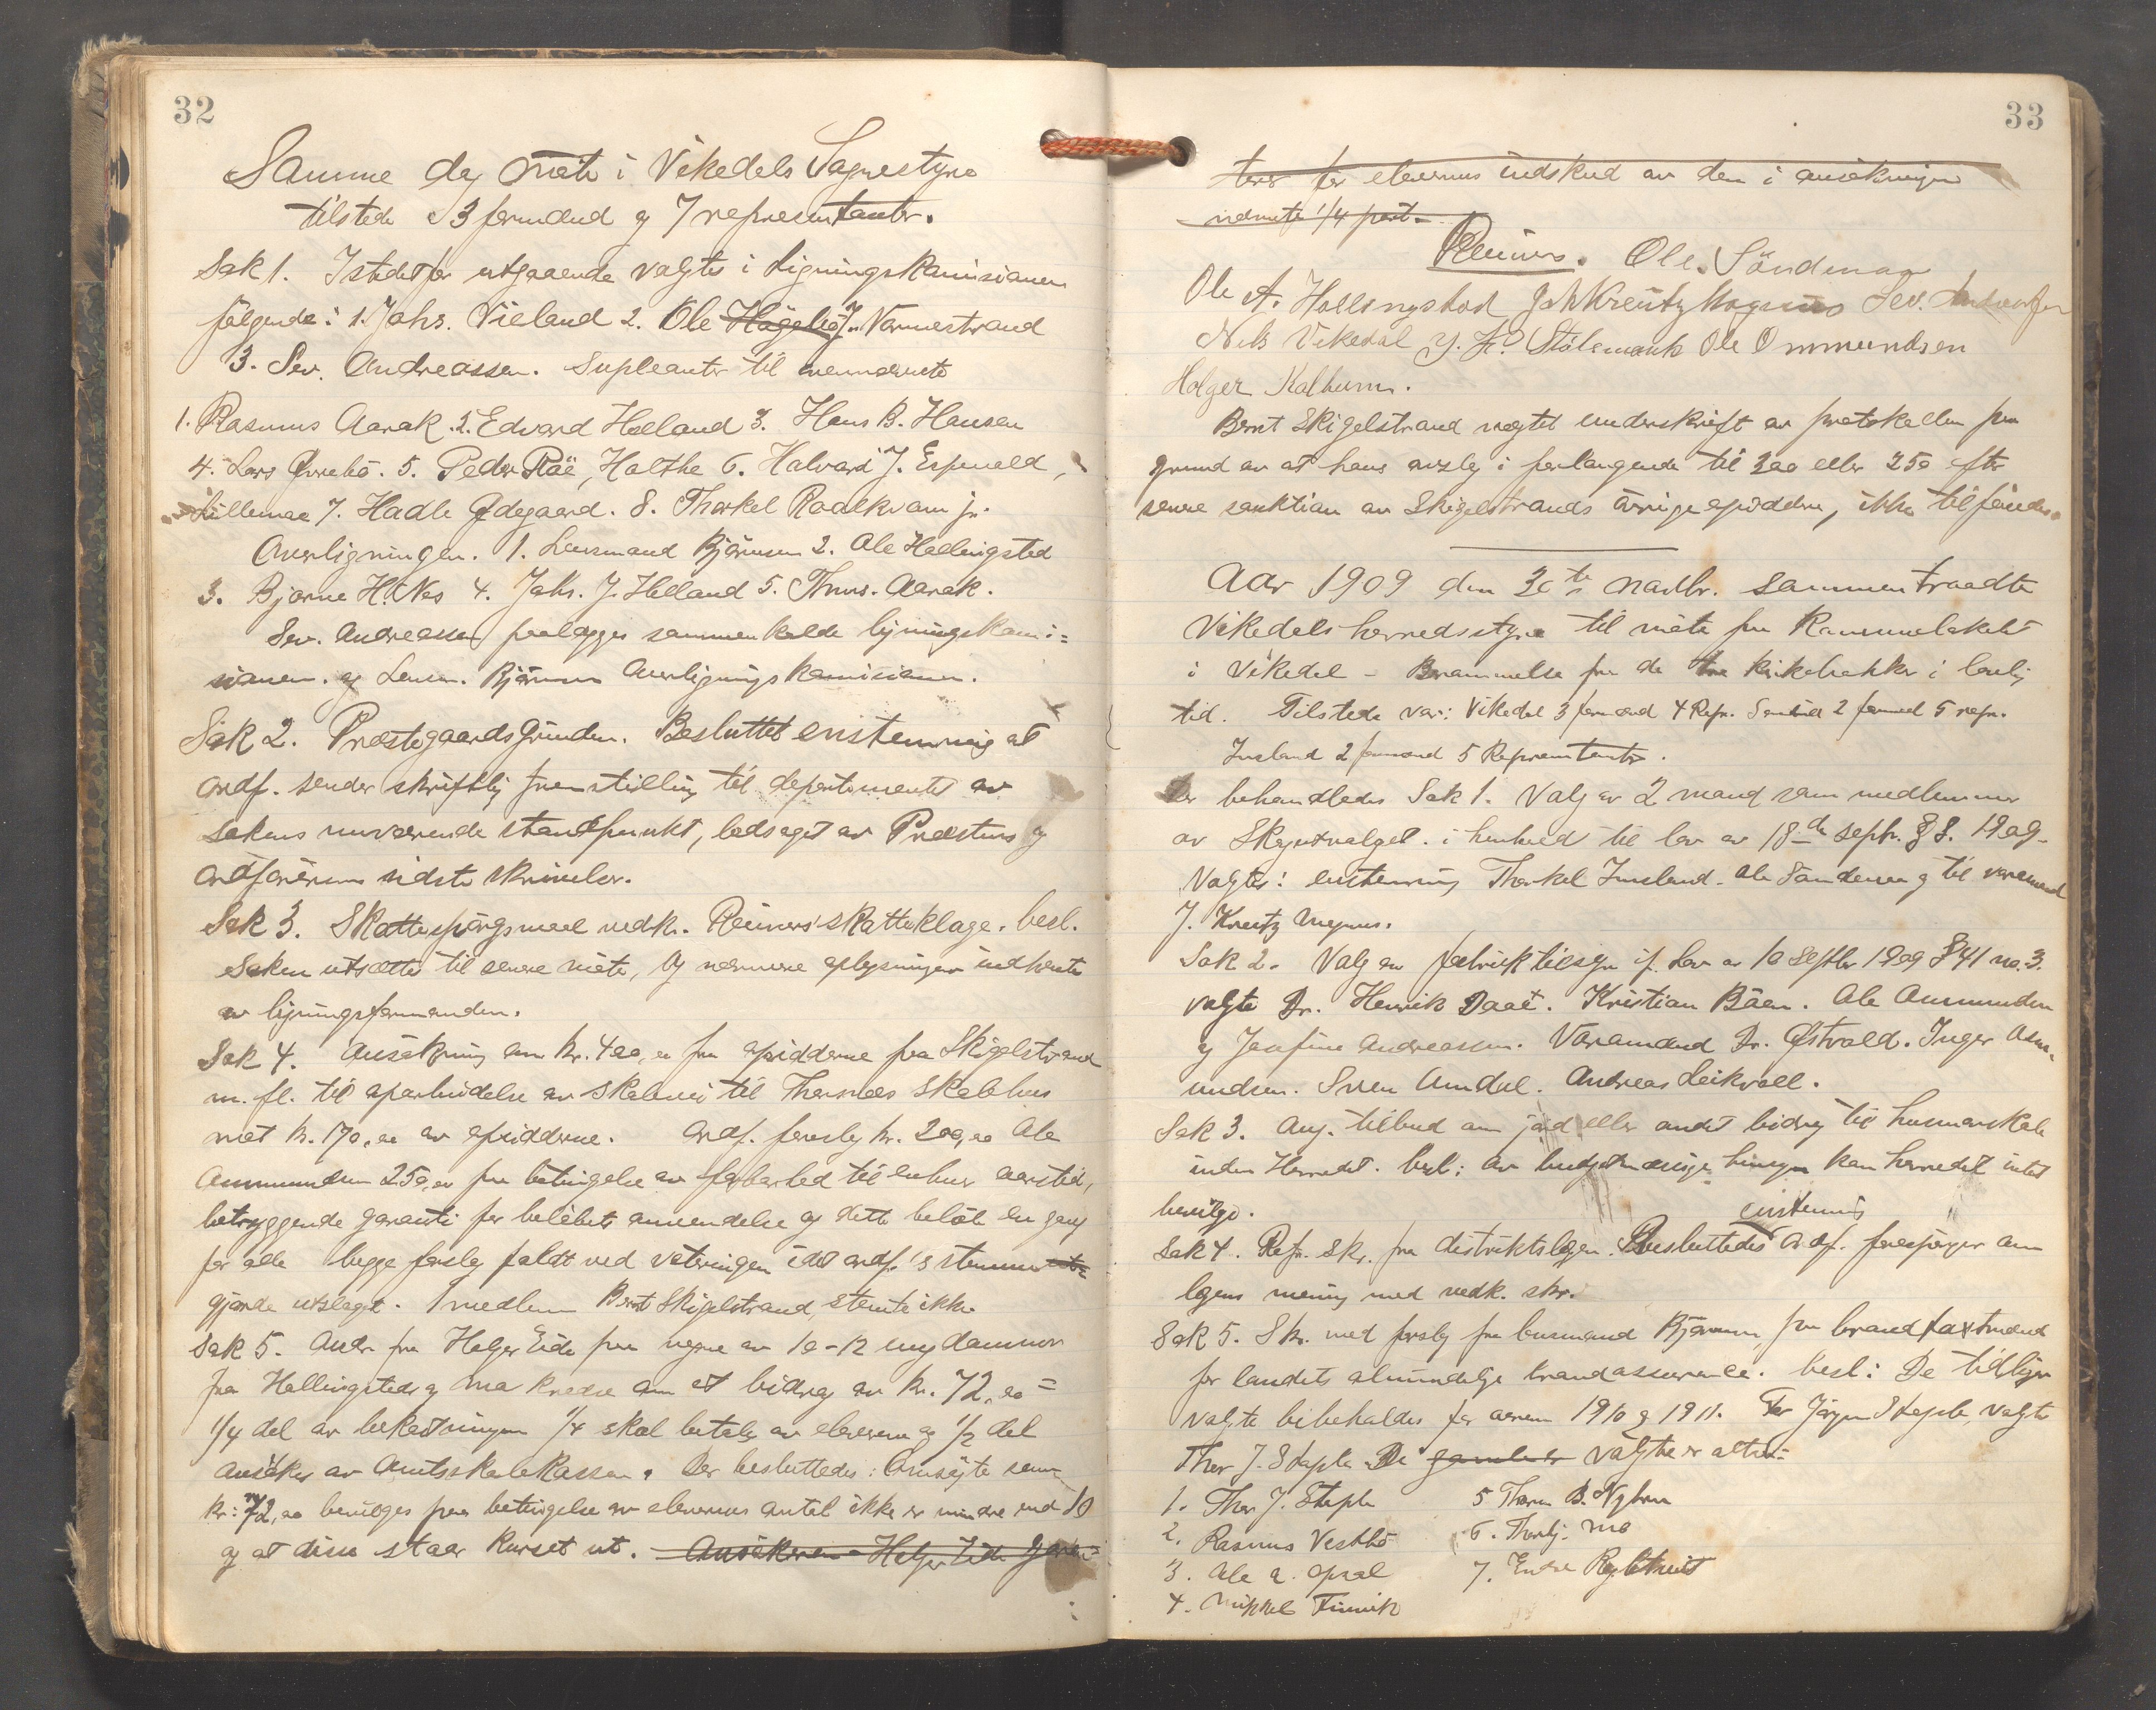 32
Samme dag møte i Vikedals Sognestyre
tilstede 3 formænd og 7 representanter.
Sak 1. Istedetfor utgaaende valgtes i Ligningskomisionen
følgende: 1. Johs. Vieland 2. Ole J. Vormestrand
3. Sev. Andreassen. Supleanter til
1. Rasmus Aarak. 2. Edvard Helland 3. Hans B. Hansen
4. Lars Øvrebö. 5. Peder Röe, Holthe 6. Halvard J. Espevold,
7. Hadle Ødegaard. 8. Thorkel Raalkvam jr.
Overligningen. 1. Lensmand Bjørnsen 2. Ole Hallingstad
3. Bjarne H. Nes 4. Johs. J. Helland 5. Thms. Aarak.
Sev. Andreassen paalægges sammenkalde ligningskomi=
sionen. og Lensm. Bjørnsen Overligningskomisionen.
Sak 2. Præstegaardsgrunden. Besluttet enstemmig at
Ordf. sender skriftlig fremstilling til departementet av
sakens nuværende standpunkt, ledsaget av Præstens og
Ordførerens sidste skrivelser.
Sak 3. Skattespørgsmaal vedk. Reiners skatteklage. besl.
Saken utsættes til senere møte, og nærmere oplysninger indhentes
av ligningsformanden.
Sak 4. Ansøkning om kr. 400,00 fra opsidderne fra Skigelstrand
m. fl. til oparbeidelse av skolevei til Thorsnæs skolehus
mot kr. 170,00 av opsidderne. Ordf. foreslog kr. 200,00 Ole
Ommundsen 250,00 paa betingelse av farbarhed til enhver aarstid,
betryggende garanti for beløbets anvendelse og dette beløb en gang
for alle begge forslag faldt ved voteringen idet ordf.'s stemme
gjorde utslaget. 1 medlem Bernt Skigelstrand, stemte ikke.
Sak 5. Andr. fra Helge Eide paa vegne av 10-12 ungdommer
fra Hallingstad og Mo kredse om et bidrag av kr. 72,00 =
1/4 del av bekostningen 1/4 skal betales av eleverne og 1/2 del
ansøkes av Amtsskolekassen. Der besluttedes: Omsøgte sum
kr: 72,00 bevilges paa betingelse av elevernes antal ikke er mindre end 10
og at disse staar kurset ut. Ansøkeren Helge Eide
33
for elevernes indskud av den i ansøkningen
nævnte 1/4 part.
Reiners. Ole Söndenaa
Ole A. Hallingstad Joh Kreutz Magnus Sev. Andreassen
Nils Vikedal Ole Ommundsen
Holger Kalhum.
Bernt Skigelstrand nægtet underskrift av protokollen paa
grund av at hans avslag i forlangende til 200 eller 250 efter
senere sanktion av Skigelstrands øvrige opsiddere, ikke tilføiedes.
Aar 1909 den 30te novbr. sammentraadte
Vikedals herredsstyre til møte paa Kommunelokalet
i Vikedal – Berammelse fra de tre kirkebakker i lovlig
tid. Tilstede var: Vikedal 3 formænd 4 Repr. Sandeid 2 formænd 5 repr.
Imsland 2 formænd 5 Representanter.
Der behandledes Sak 1. Valg av 2 mand som medlemmer
av Skogutvalget. i henhold til lov av 18de septr. § 8. 1909
Valgtes: enstemmig Thorkel Imsland. Ole Søndenaa og til varamænd
J. Kreutz Magnus.
Sak 2. Valg av fabriktilsyn if. Lov av 10 septbr 1909 § 41 no. 3.
valgte Dr. Henrik Daae. Kristian Bøen. Ole Ommundsen
og Josefine Andreassen. Varamænd Dr. Østvold. Inger Omm-
undsen. Sven Amdal. Andreas Leikvoll.
Sak 3. Ang. tilbud om jord eller andet bidrag til husmorskole
inden Herredet. besl: av budgetmæssige hensyn kan herredet intet
bevilge.
enstemmig
Sak 4. Refr. skr. fra distriktslægen. Besluttedes Ordf. forespørger om
lægens mening med vedk. skr.
Sak 5. Skr. med forslag fra lensmand Bjørnsen, paa brandtaxtmænd
for landets almindelige brandassurance. besl: De tidligere
valgte bibeholdes for aarene 1910 og 1911. For Jørgen Stople, valgtes
Thor J. Stople. De gamle er valgte er altsaa:
1. Thor J. Stople
2. Rasmus Vestbø
3. Ole A. Opsal
4. Mikkel
5 Thorm B. Nybru
6. Thorbj. Mo
7. Endre